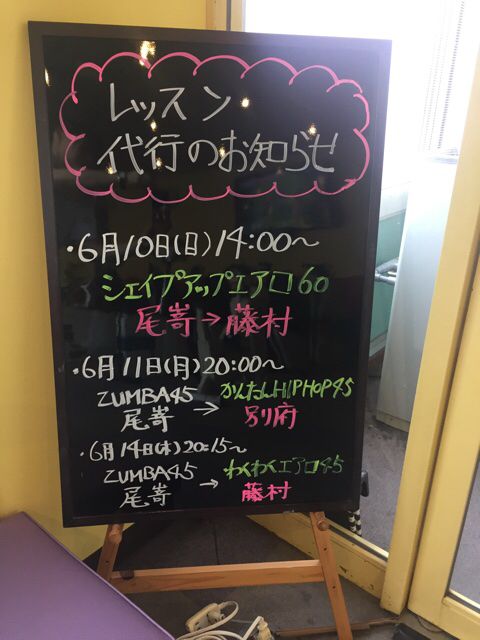 レッスン
代行のお知らせ
・6月10日(日)14:00～
シェイプアップエアロ60
尾嵜→藤村
・6月11日(月)20:00～
ZUMBA45 → かんたんHIPHOP45
尾嵜 別府
・6月14日(木)20:15～
ZUMBA45 → わくわくエアロ45
尾嵜 藤村